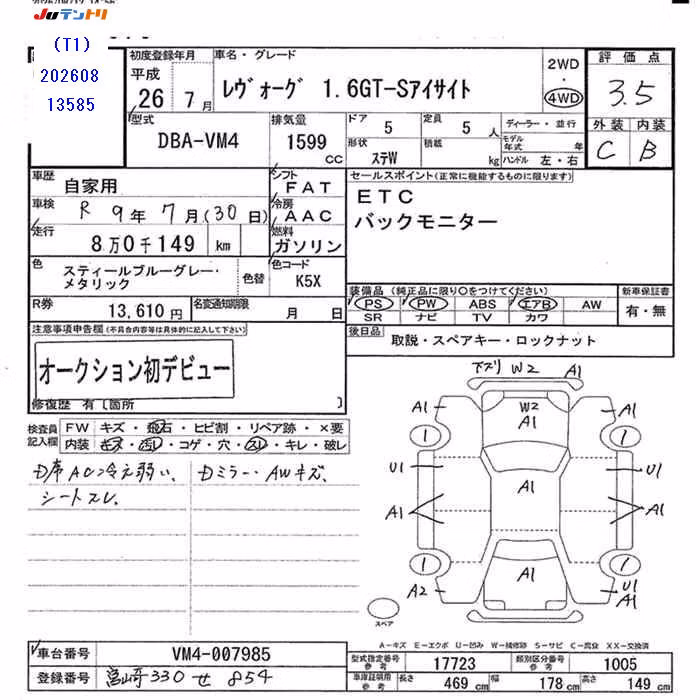 Juテントリ
(T1)
202608
13585
初度登録年月
平成
26年7月
車名・グレード
レヴォーグ 1.6GT-Sアイサイト
2WD
・
4WD
評価点
3.5
外装 内装
C B
型式
DBA-VM4
排気量
1599
CC
ドア
5
定員
5人
ディーラー・並行
形状
ステW
積載
kg
モデル年式 年
ハンドル 左・右
車歴
自家用
シフト
FAT
車検
R 9年7月(30日)
冷房
AAC
走行
8万0千149 km
燃料
ガソリン
色
スティールブルーグレー・メタリック
色替
色コード
K5X
R券
13,610円
名変通知期限
月 日
セールスポイント(正常に機能するものに限ります)
ETC
バックモニター
装備品(純正品に限り〇をつけてください)
新車保証書
PS PW ABS エアB AW
SR ナビ TV カワ
有・無
後日品
取説・スペアキー・ロックナット
注意事項申告欄(不具合内容等は具体的に記入して下さい)
オークション初デビュー
修復歴 有〔箇所 〕
検査員記入欄
FW キズ・飛石・ヒビ割・リペア跡・×要
内装 キズ・汚レ・コゲ・穴・スレ・キレ・破レ
D席AC冷え弱い、
シートスレ、
Dミラー・AWキズ、
下ズリ W2 A1
A1 W2 A1
A1
1 1
U1 A1 U1
A1 A1
1 1
A2 A1 U1
A1
スペア
A-キズ E-エクボ U-凹み W-補修跡 S-サビ C-腐食 XX-交換済
車台番号
VM4-007985
登録番号
宮崎330せ854
型式指定番号
参考
17723
類別区分番号
参考
1005
車庫証明用
参考
長さ 469 cm
幅 178 cm
高さ 149 cm